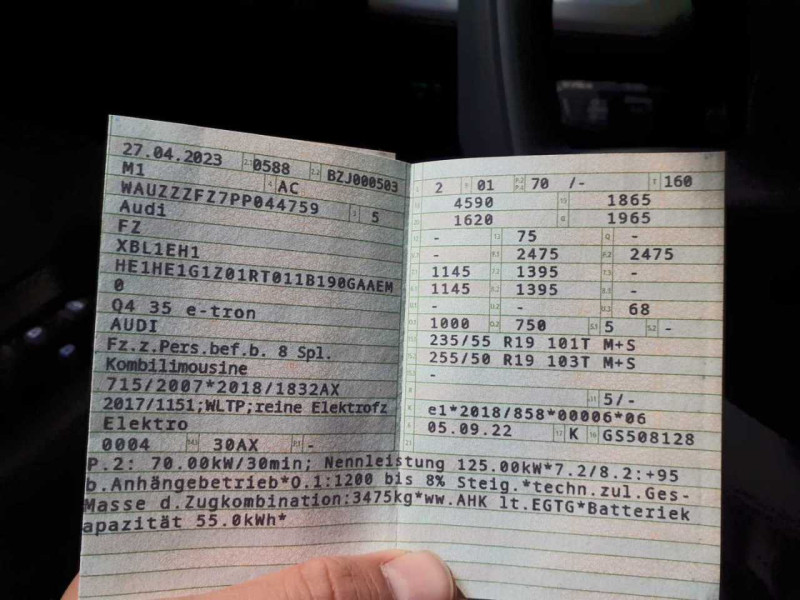 27.04.2023 0588 BZJ000503
M1 AC
WAUZZZFZ7PP044759 5
Audi
FZ
XBL1EH1
HE1HE1G1Z01RT011B190GAAEM
0
Q4 35 e-tron
AUDI
Fz.z.Pers.bef.b. 8 Spl.
Kombilimousine
715/2007*2018/1832AX
2017/1151;WLTP;reine Elektrofz
Elektro
0004 30AX -
2 01 70 /- 160
4590 1865
1620 1965
- 75 -
- 2475 2475
1145 1395 -
1145 1395 -
- - 68
1000 750 5 -
235/55 R19 101T M+S
255/50 R19 103T M+S
-
5/-
e1*2018/858*00006*06
05.09.22 K GS508128
P.2: 70.00kW/30min; Nennleistung 125.00kW*7.2/8.2:+95
b.Anhängebetrieb*O.1:1200 bis 8% Steig.*techn.zul.Ges-
Masse d.Zugkombination:3475kg*ww.AHK lt.EGTG*Batteriek
apazität 55.0kWh*